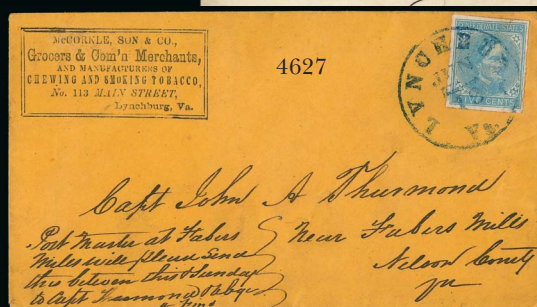 McCORKLE, SON & CO.,
Grocers & Com'n Merchants,
AND MANUFACTURERS OF
CHEWING AND SMOKING TOBACCO,
No. 113 MAIN STREET,
Lynchburg, Va.
4627
LYNCH
VA
CENTS
Capt John A Thurmond
Near Fabers Mills
Nelson County
Post Master at Fabers
Mills will please send
this
to Capt